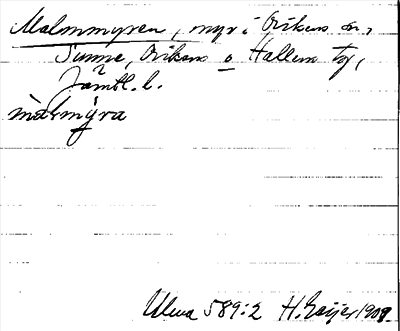 Malmmyren, myr i Ovikens sn,
Sunne, Ovikens o Hallens tg,
Jämtl. l.
màlmýra
Ulma 589:2 H. Geijer 1909.